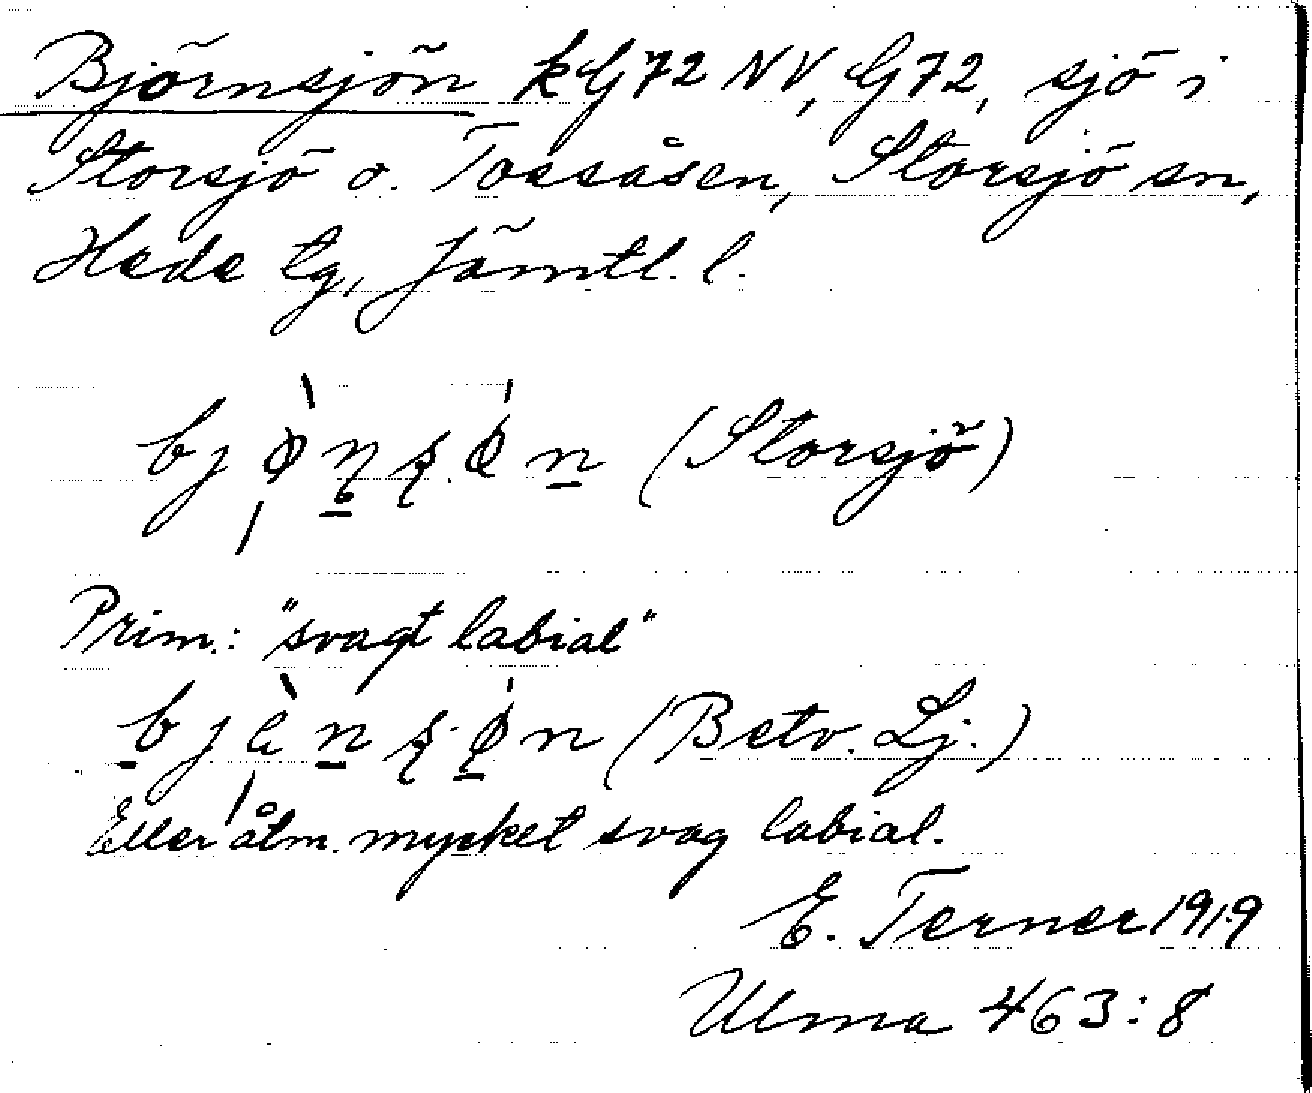 Björnsjön kG72 NV, G72, sjö i
Storsjö o. Tossåsen, Storsjö sn,
Hede tg, Jämtl. l.
(Storsjö)
Prim.: "svagt labial"
(Betv. Lj.)
Eller åtm. mycket svag labial.
E. Terner 1919
Ulma 463:8